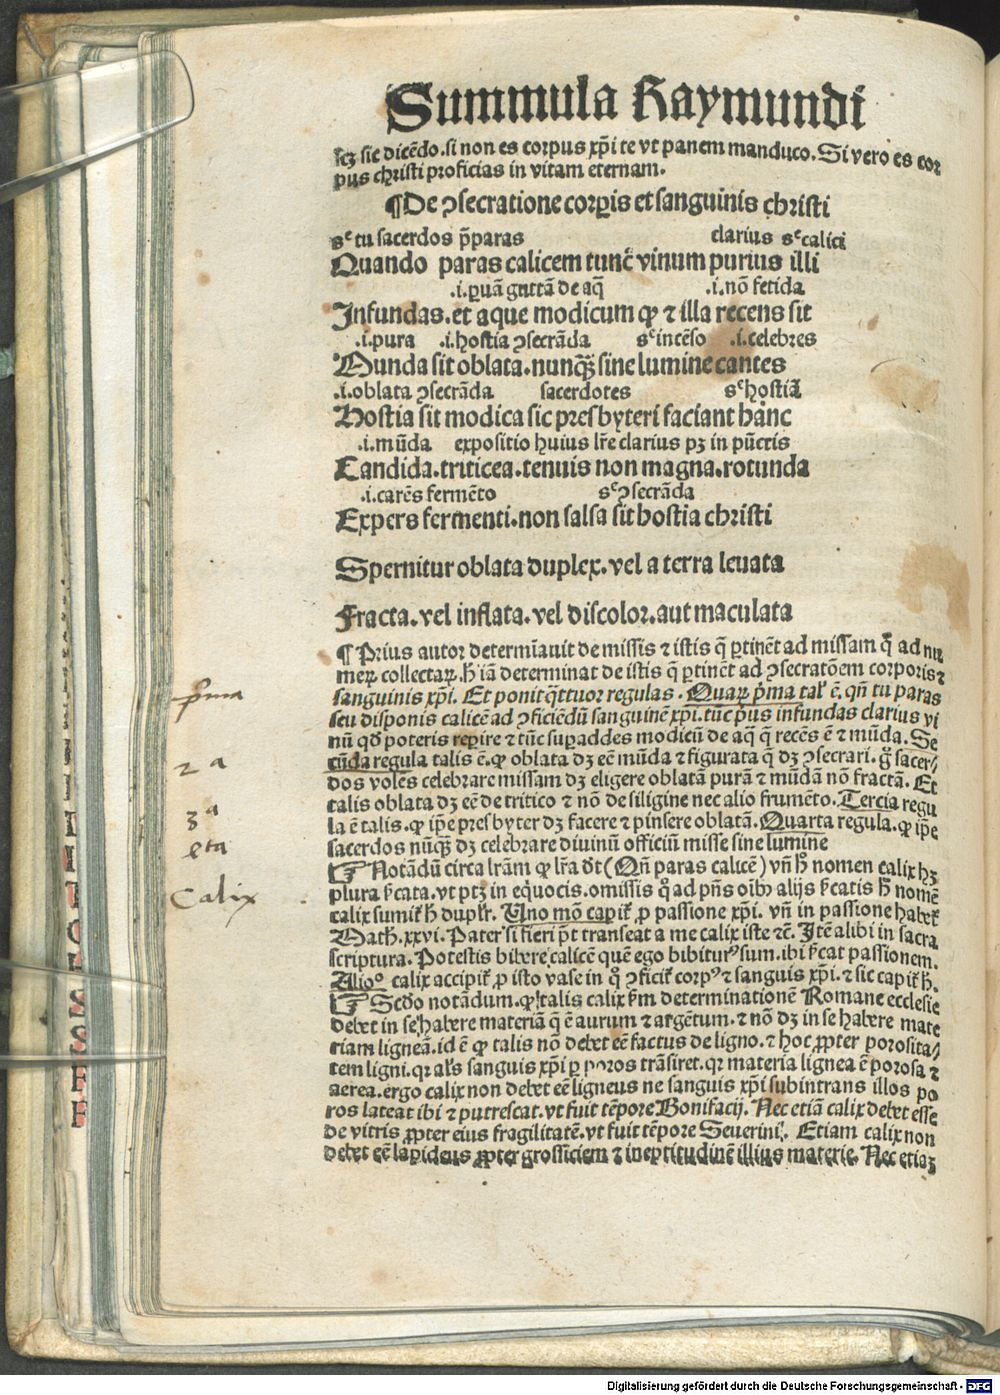 Summula Raymundi
scꝫ sic dicēdo. si non es corpus xp̄i te vt panem manduco. Si vero es cor
pus christi proficias in vitam eternam.
¶De ↄsecratione corꝑis et sanguinis christi
sᶜ tu sacerdos p̄paras clarius sᶜ calici
Quando paras calicem tunc vinum purius illi
.i. ꝑuā guttā de aq̄ .i. nō fetida
Infundas. et aque modicum qꝫ ⁊ illa recens sit
.i. pura .i. hostia ↄsecrāda sᶜ incēso .i. celebres
Munda sit oblata. nunqꝫ sine lumine cantes
.i. oblata ↄsecrāda sacerdotes sᶜ hostiā
Hostia sit modica sic presbyteri faciant hanc
.i. mūda expositio huius lr̄e clarius pꝫ in pūctis
Candida. triticea. tenuis non magna. rotunda
.i. carēs fermēto sᶜ ↄsecrāda
Expers fermenti. non salsa sit hostia christi
Spernitur oblata duplex. vel a terra leuata
Fracta. vel inflata. vel discolor. aut maculata
¶ Prius autor determīauit de missis ⁊ istis q̄ ꝑtinēt ad missam q̄ ad nu
meꝝ collectaꝝ. h̄ iā determinat de istis q̄ ꝑtinēt ad ↄsecratōem corporis ⁊
sanguinis xp̄i. Et ponit q̄ttuor regulas. Quaꝝ p̄ma tal' ē. qn̄ tu paras
seu disponis calicē ad ↄficiēdū sanguinē xp̄i. tūc p̄us infundas clarius vi
nū qd̄ poteris reꝑire ⁊ tūc suꝑaddes modicū de aq̄ q̄ recēs ē ⁊ mūda. Se
cūda regula talis ē. ꝙ oblata dꝫ eē mūda ⁊ figurata q̄ dꝫ ↄsecrari. g̊ sacer
dos volēs celebrare missam dꝫ eligere oblatā purā ⁊ mūdā nō fractā. Et
talis oblata dꝫ eē de tritico ⁊ nō de siligine nec alio frumēto. Tercia regu
la ē talis. ꝙ ip̄e presbyter dꝫ facere ⁊ pinsere oblatā. Quarta regula. ꝙ ip̄e
sacerdos nūqꝫ dꝫ celebrare diuinū officiū misse sine lumine
☞ Notādū circa lr̄am ꝙ lr̄a dt̄ (Qn̄ paras calicē) vn̄ h̄ nomen calix hꝫ
plura sc̄ata. vt ptꝫ in equocis. omissis q̊ ad pn̄s oīb⁹ alijs sc̄atis h̄ nomē
calix sumit̄ h̄ duplr̄. Uno mō capit̄ ꝓ passione xp̄i. vn̄ in passione habet̄
Math. xxvi. Pater si fieri pōt transeat a me calix iste ⁊c̄. Itē alibi in sacra
scriptura. Potestis bibere calicē quē ego bibitur⁹ sum. ibi sc̄at passionem.
Alio⁰ calix accipit̄ ꝓ isto vase in q̊ ↄficit̄ corp⁹ ⁊ sanguis xp̄i. ⁊ sic capit̄ h̄.
☞ Scd̄o notādum. ꝙ talis calix scd̄m determinationē Romane ecclesie
debet in se habere materiā q̄ ē aurum ⁊ argētum. ⁊ nō dꝫ in se habere mate
riam ligneā. id ē ꝙ talis nō debet eē factus de ligno. ⁊ hoc ꝓpter porosita
tem ligni. qr al's sanguis xp̄i ꝑ poros trāsiret. qr materia lignea ē porosa ⁊
aerea. ergo calix non debet eē ligneus ne sanguis xp̄i subintrans illos po
ros lateat ibi ⁊ putrescat. vt fuit tēpore Bonifacij. Nec etiā calix debet esse
de vitris ꝓpter eius fragilitatē. vt fuit tēpore Seuerini. Etiam calix non
debet eē lapideus ꝓpter grossiciem ⁊ ineptitudinē illius materie. Nec etiaꝫ
p̄ma
2ᵃ
3ᵃ
4ta
Calix
Digitalisierung gefördert durch die Deutsche Forschungsgemeinschaft - DFG